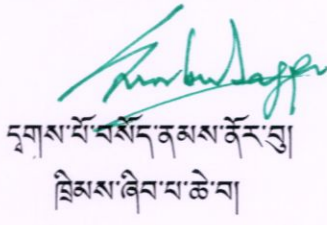 དྭགས་པོ་བསོད་ནམས་ནོར་བུ།
ཁྲིམས་ཞིབ་པ་ཆེ་བ།